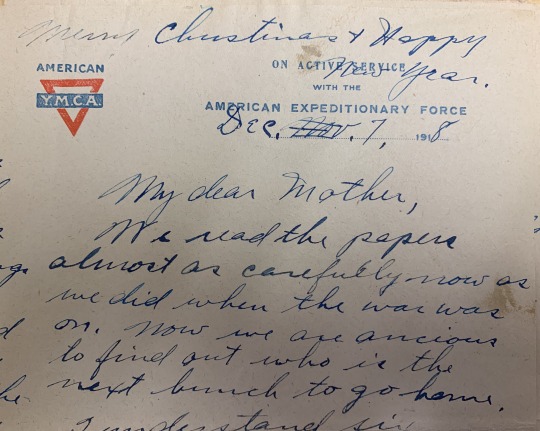 Merry Christmas & Happy
New Year.
AMERICAN
Y.M.C.A.
ON ACTIVE SERVICE
WITH THE
AMERICAN EXPEDITIONARY FORCE
Dec. Nov. 7, 1918
My dear Mother,
We read the papers
almost as carefully now as
we did when the war was
on. Now we are ancious
to find out who is the
next bunch to go home.
I understand six